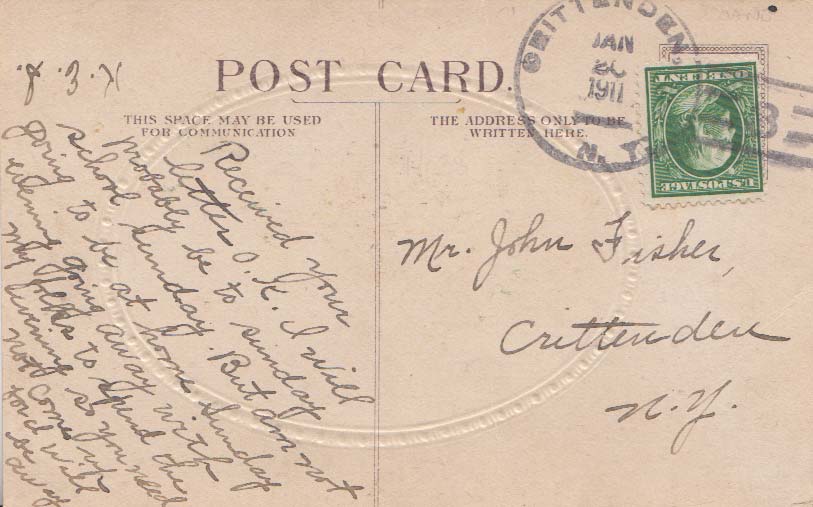 POST CARD.
THIS SPACE MAY BE USED
FOR COMMUNICATION
THE ADDRESS ONLY TO BE
WRITTEN HERE.
CRITTENDEN
JAN
1911
N.Y.
ONE CENT
U.S. POSTAGE
Mr. John Fisher,
Crittenden
N.Y.
Received your
letter O.K. I will
probably be to sunday
school sunday. But am not
going to be at home sunday
evening going away with
my folks to spend the
evening so you need
not come up
for I will
be away
K.E.J.